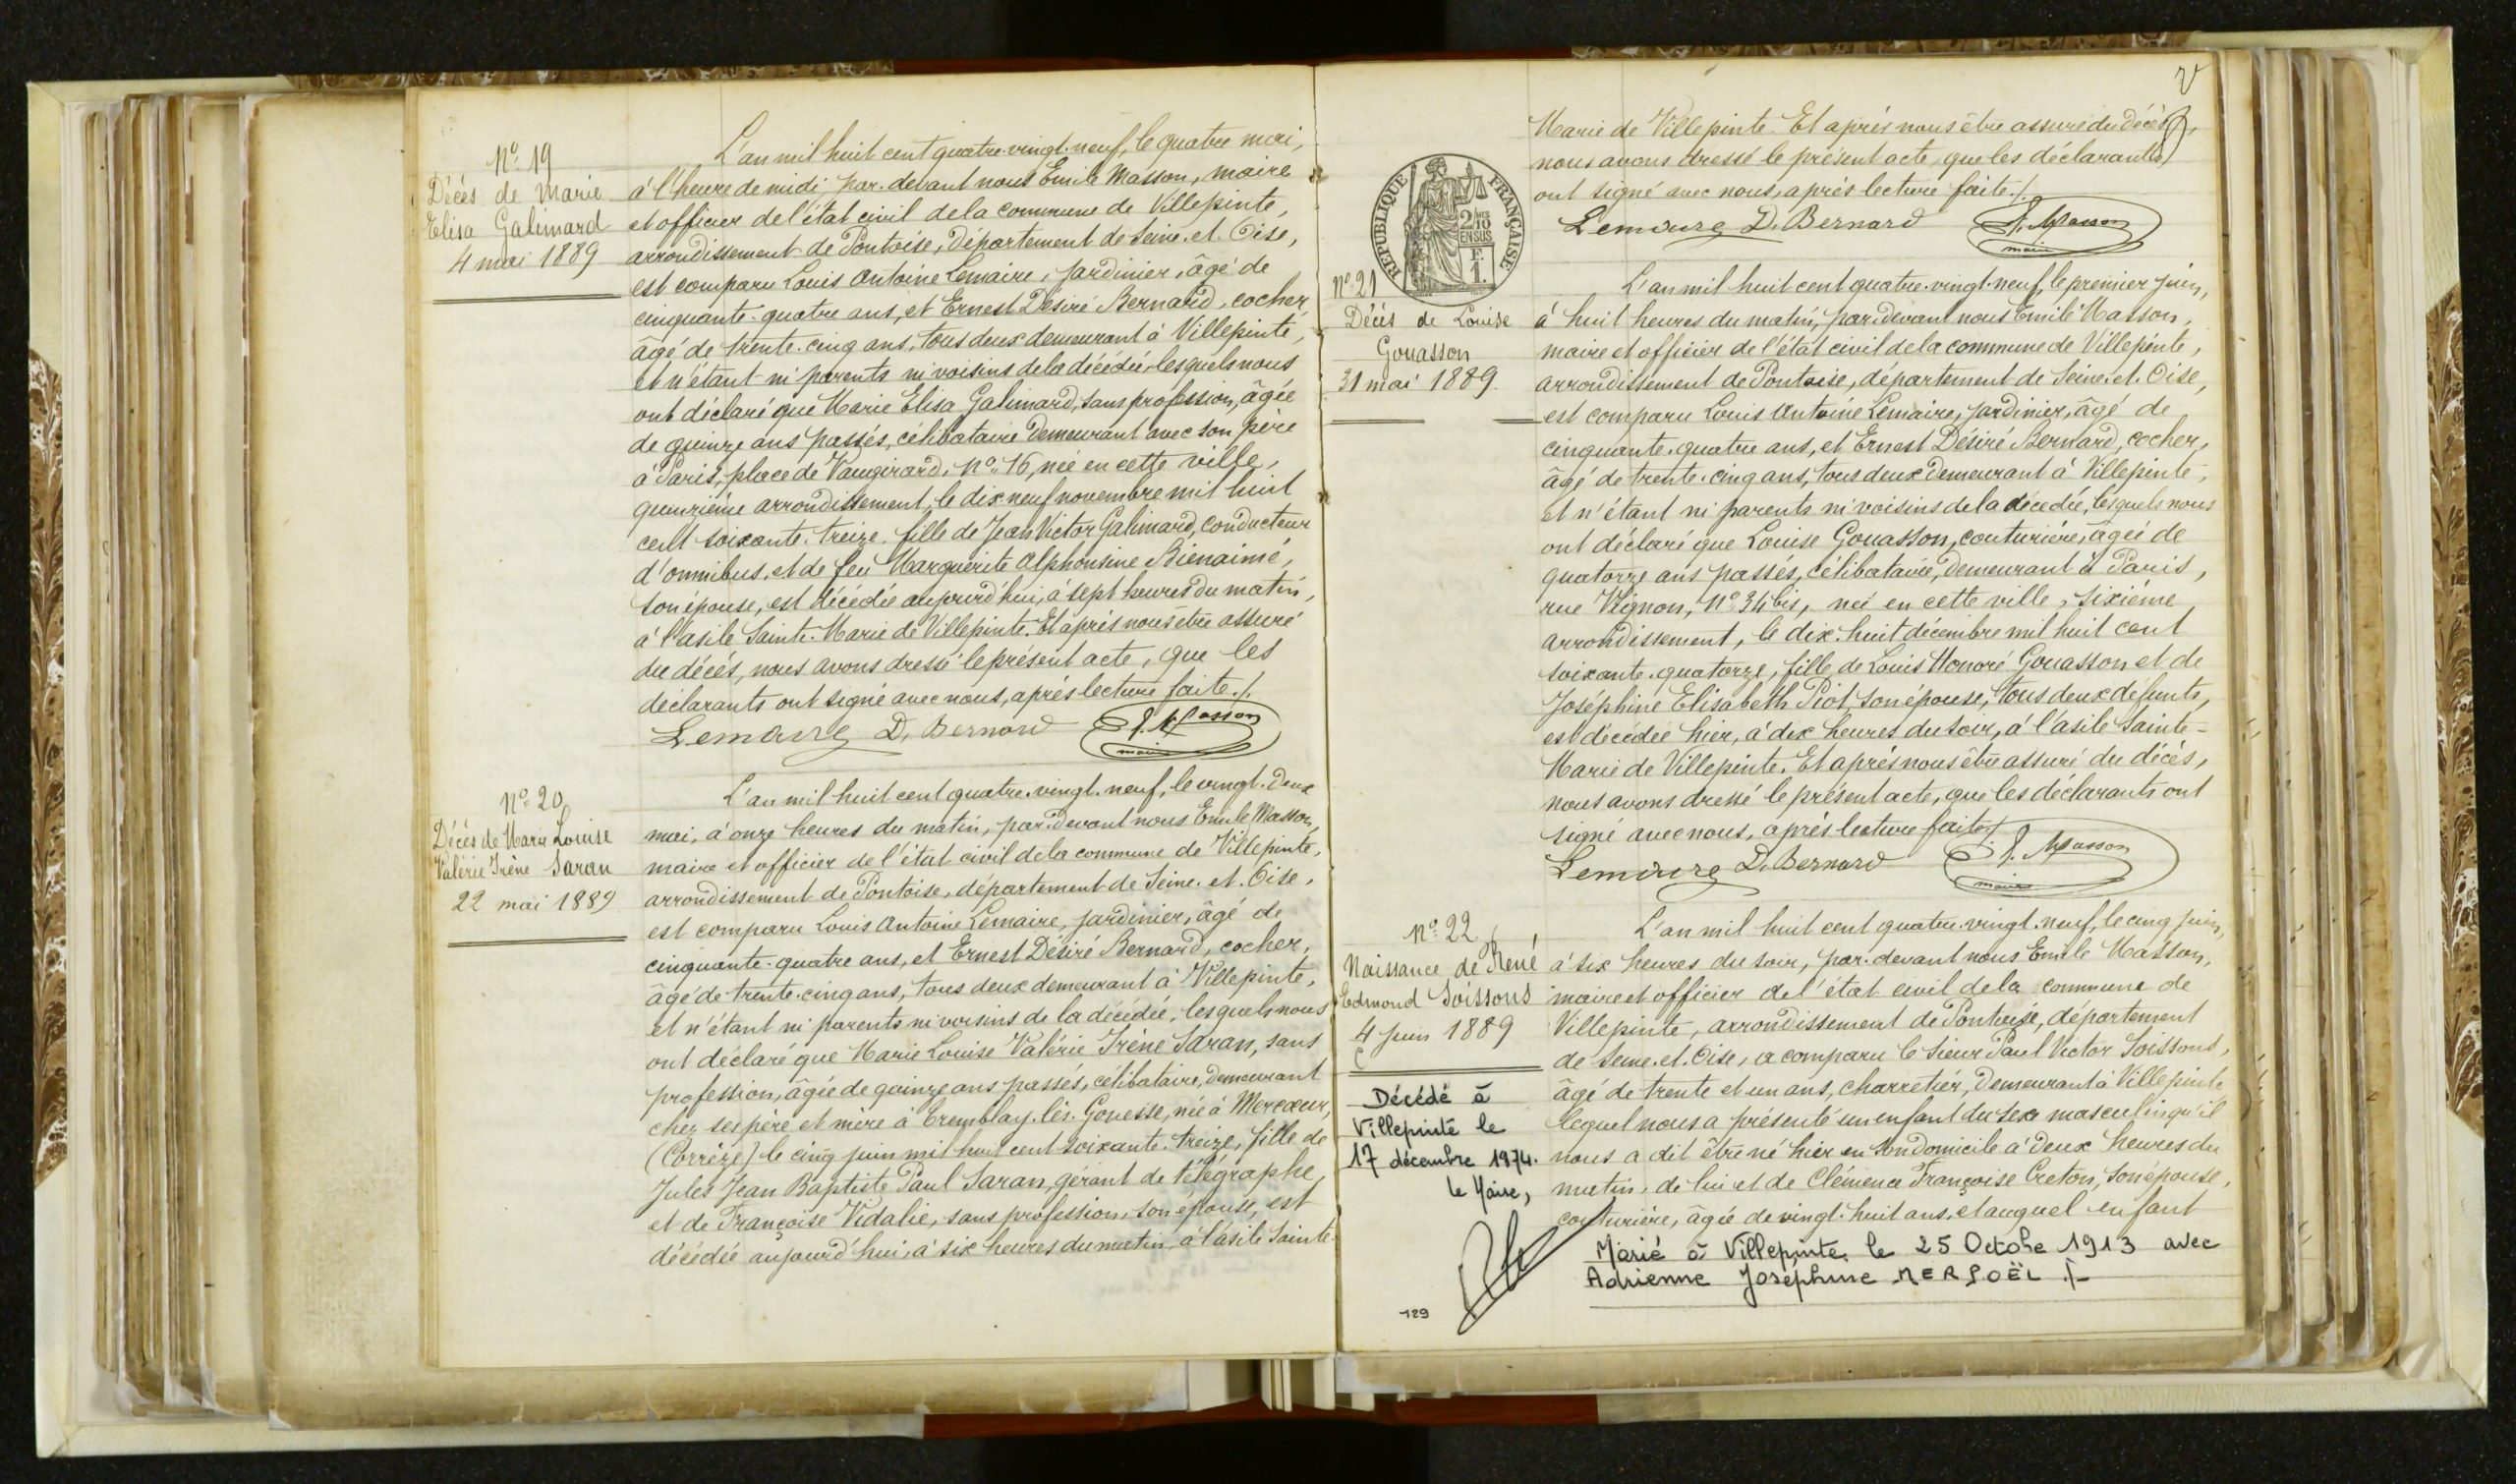 N° 19
Décès de Marie
Elisa Galimard
4 mai 1889
L'an mil huit cent quatre-vingt-neuf, le quatre mai,
à l'heure de midi, par-devant nous Emile Masson, maire
et officier de l'état civil de la commune de Villepinte,
arrondissement de Pontoise, Département de Seine-et-Oise,
est comparu Louis Antoine Lemaire, jardinier, âgé de
cinquante-quatre ans, et Ernest Désiré Bernard, cocher,
âgé de trente-cinq ans, tous deux demeurant à Villepinte,
et n'étant ni parents ni voisins de la décédée, lesquels nous
ont déclaré que Marie Elisa Galimard, sans profession, âgée
de quinze ans passés, célibataire demeurant avec son père
à Paris, place de Vaugirard, N° 16, née en cette ville,
quinzième arrondissement, le dix neuf novembre mil huit
cent soixante-treize, fille de Jean Victor Galimard, Conducteur
d'omnibus, et de feu Marguerite Alphonsine Bienaimé,
son épouse, est décédée aujourd'hui, à sept heures du matin,
à l'asile Sainte-Marie de Villepinte. Et après nous être assuré
du décès, nous avons dressé le présent acte, que les
déclarants ont signé avec nous, après lecture faite./.
Lemaire D. Bernard E. Masson
maire
N° 20
Décès de Marie Louise
Valérie Irène Saran
22 mai 1889
L'an mil huit cent quatre-vingt-neuf, le vingt-deux
mai, à onze heures du matin, par-devant nous Emile Masson,
maire et officier de l'état civil de la commune de Villepinte,
arrondissement de Pontoise, département de Seine-et-Oise,
est comparu Louis Antoine Lemaire, jardinier, âgé de
cinquante-quatre ans, et Ernest Désiré Bernard, cocher,
âgé de trente-cinq ans, tous deux demeurant à Villepinte,
et n'étant ni parents ni voisins de la décédée, lesquels nous
ont déclaré que Marie Louise Valérie Irène Saran, sans
profession, âgée de quinze ans passés, célibataire, demeurant
chez ses père et mère à Tremblay-lès-Gonesse, née à Mercœur,
(Corrèze) le cinq juin mil huit cent soixante-treize, fille de
Jules Jean Baptiste Paul Saran, gérant de télégraphe,
et de Françoise Vidalie, sans profession, son épouse, est
décédée aujourd'hui, à six heures du matin, à l'asile Sainte-
Marie de Villepinte. Et après nous être assuré du décès,
nous avons dressé le présent acte, que les déclarants
ont signé avec nous, après lecture faite./.
Lemaire D. Bernard E. Masson
maire
REPUBLIQUE FRANÇAISE
2/10
EN SUS
F.
1.
N° 21
Décès de Louise
Gouasson
31 mai 1889
L'an mil huit cent quatre-vingt-neuf, le premier juin,
à huit heures du matin, par-devant nous Emile Masson,
maire et officier de l'état civil de la commune de Villepinte,
arrondissement de Pontoise, département de Seine-et-Oise,
est comparu Louis Antoine Lemaire, jardinier, âgé de
cinquante-quatre ans, et Ernest Désiré Bernard, cocher,
âgé de trente-cinq ans, tous deux demeurant à Villepinte,
et n'étant ni parents ni voisins de la décédée, lesquels nous
ont déclaré que Louise Gouasson, couturière, âgée de
quatorze ans passés, célibataire, demeurant à Paris,
rue Vignon, N° 34 bis, née en cette ville, sixième
arrondissement, le dix-huit décembre mil huit cent
soixante-quatorze, fille de Louis Honoré Gouasson et de
Joséphine Elisabeth Piot, son épouse, tous deux défunts,
est décédée hier, à dix heures du soir, à l'asile Sainte-
Marie de Villepinte. Et après nous être assuré du décès,
nous avons dressé le présent acte, que les déclarants ont
signé avec nous, après lecture faite./.
Lemaire D. Bernard E. Masson
maire
N° 22
Naissance de René
Edmond Soissons
4 Juin 1889
L'an mil huit cent quatre-vingt-neuf, le cinq juin,
à six heures du soir, par-devant nous Emile Masson,
maire et officier de l'état civil de la commune de
Villepinte, arrondissement de Pontoise, département
de Seine-et-Oise, a comparu le sieur Paul Victor Soissons,
âgé de trente et un ans, charretier, demeurant à Villepinte
lequel nous a présenté un enfant du sexe masculin qu'il
nous a dit être né hier en son domicile à deux heures du
matin, de lui et de Clémence Françoise Creton, son épouse,
couturière, âgée de vingt-huit ans, et auquel enfant
Décédé à
Villepinte le
17 décembre 1974.
le Maire,
Marié à Villepinte le 25 Octobre 1913 avec
Adrienne Joséphine MERLOËL ./-
129